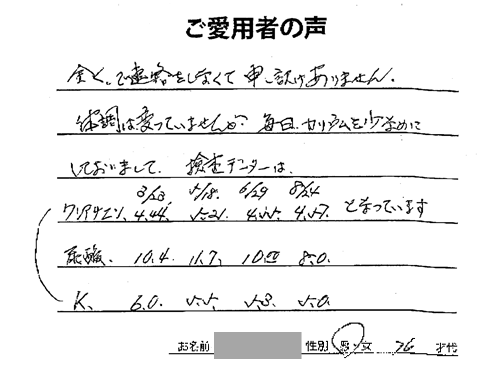 ご愛用者の声
全く、ご連絡をしなくて申し訳ありません。
体調は変っていませんが、毎日、カリウムを少なめに
しておりまして、検査データーは、
3/23 5/18. 6/29 8/24
クレアチニン、4.44、5.21. 4.55. 4.57. となっています
尿酸、10.4. 11.7、10.00 8.0.
K、6.0. 5.5. 5.3. 5.0.
お名前 性別 男・女 76 才代